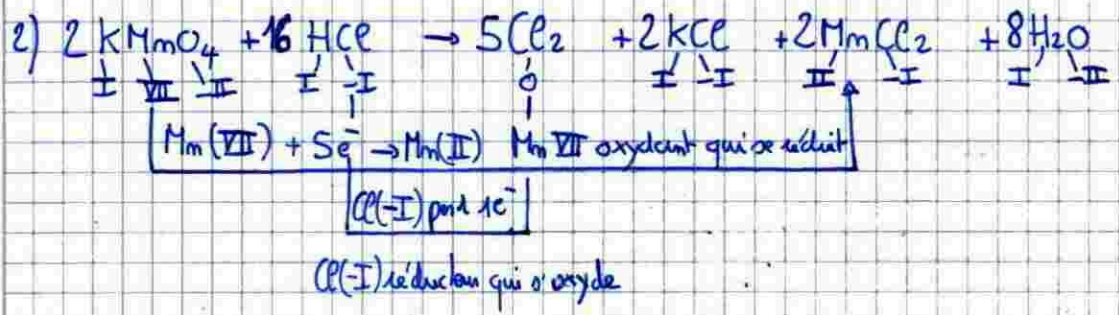 2) 2 KMnO4 + 16 HCl → 5Cl2 + 2KCl + 2MnCl2 + 8H2O
I VII -II I -I 0 I -I II -I I -II
Mn(VII) + 5e- → Mn(II) Mn VII oxydant qui se réduit
Cl(-I) perd 1e-
Cl(-I) réducteur qui s'oxyde